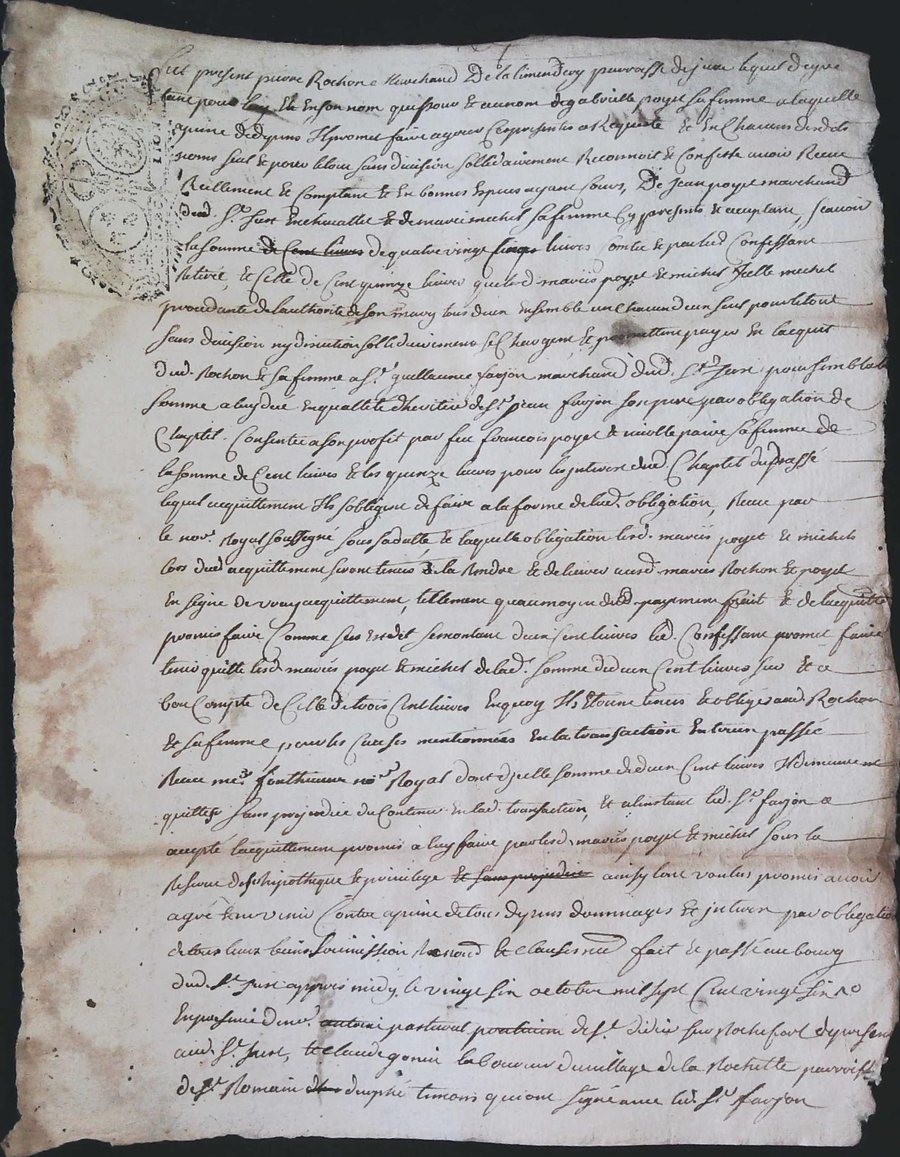 fut present pierre Rochon marchand De la limandery parroisse de jure lequel de gre
tant pour luy & En son nom que pour & au nom de gabrielle poyet sa femme a laquelle
a peine de depens Il promet faire agreer Ces presentes a Requeste & En Chacuns desdts
noms seul & pour le tout sans division sollidairement Reconnoit & Confesse avoir Receu
Reellement & Comptant & En bonnes Espices ayant Cours, De Jean poyet marchand
dud. St. Just En chevallet & de marie michel sa femme Cy presents & acceptant, scavoir
la somme de Cent livres de quatre vingt livres Contée & par led Confessant
Retiré, & Celle de Cent quinze livres que lesd mariés poyet & michel Icelle michel
procedante de l'authorité de son mary tous deux Ensemble un Chacun d'eux seul pour le tout
sans division ny discution sollidairement se Chargent & promettent payer En lacquit
dud. Rochon & sa femme a Sr. guillaume farjon marchand dud. St. Just pour semblable
somme a luy due En quallité d'heritier de Sr. Jean farjon son pere par obligation de
Chaptel Consentie a son profit par feu francois poyet & nicolle paire sa femme de
la somme de Cent livres & les quinze livres pour les interes dud. Chaptel du passé
lequel acquittement Ils s'obligent de faire a la forme de lad. obligation Receue par
le nore. Royal soussigné sous sa datte & laquelle obligation lesd. mariés poyet & michel
lors dud acquittement seront tenus de la Rendre & delivrer ausd. mariés Rochon & poyet
En signe de vray acquittement, tellement quau moyen dud. payement fait & de lacquittement
promis faire Comme sus Est dit se montant deux Cent livres led. Confessant promet faire
tenir quitte lesd. mariés poyet & michel de lad. somme de deux Cent livres sur & a
bon Compte de Celle de trois Cent livres En quoy Ils Etoint tenus & obligés aud. Rochon
& sa femme pour les Causes mentionnées En la transaction Entreux passée
Receue me. nore. Royal dont dIcelle somme de deux Cent livres Il demeurent
quittes sans prejudice du Contenu En lad. transaction, & a linstant led. Sr. farjon a
accepté lacquittement promis a luy faire par lesd. mariés poyet & michel sous la
Reserve de ses hipotheque & privilege & sans prejudice ainsy lont voulus promis avoir
agré & ny venir Contre a peine de tous depens dommages & interes par obligation
de tous leurs biens soumission Renond & clauses fait & passé au bourg
dud. St. Just appres midy le vingt six octobre mil sept Cent vingt six
En presence de mre. antoine pasturel praticien de St. didier sur Rochefort de present
aud. St. Just, & claude gonin laboureur du village de la Rochette parroisse
de St. Romain d'urphé temoins qui ont signé avec led. Sr. farjon